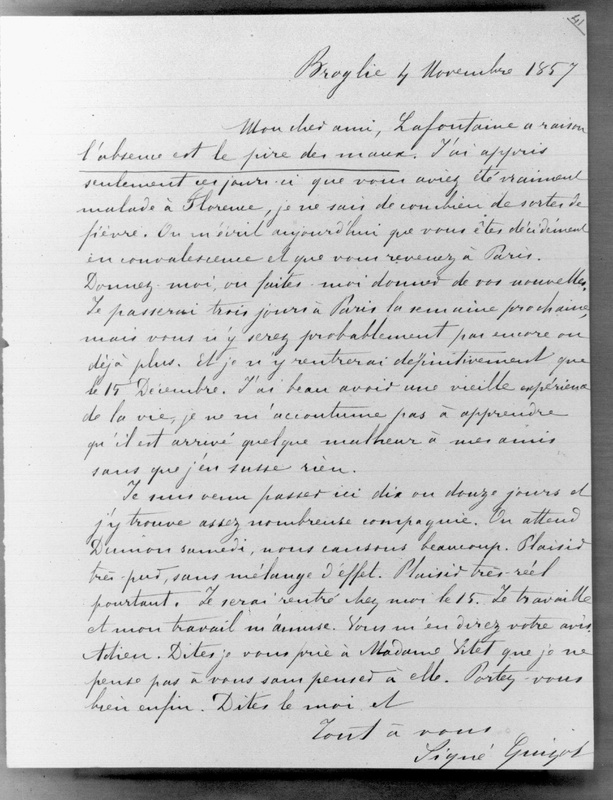 41
Broglie 4 Novembre 1857
Mon cher ami, Lafontaine a raison
l'absence est le pire des maux. J'ai appris
seulement ces jours-ci que vous aviez été vraiment
malade à Florence, je ne sais de combien de sortes de
fièvre. On m'écrit aujourd'hui que vous êtes décidément
en convalescence et que vous revenez à Paris.
Donnez-moi, ou faites-moi donner de vos nouvelles.
Je passerai trois jours à Paris la semaine prochaine,
mais vous n'y serez probablement pas encore ou
déjà plus. Et je n'y rentrerai definitivement que
le 15 Décembre. J'ai beau avoir une vieille expérience
de la vie, je ne m'accoutume pas à apprendre
qu'il est arrivé quelque malheur à mes amis
sans que j'en susse rien.
Je suis venu passer ici dix ou douze jours et
j'y trouve assez nombreuse compagnie. On attend
Dumon samedi, nous causons beaucoup. Plaisir
très-pur, sans mélange d'effet. Plaisir très-réel
pourtant. Je serai rentré chez moi le 15. Je travaille
et mon travail m'amuse. Vous m'en direz votre avis.
Adieu. Dites je vous prie à Madame Vitet que je ne
pense pas à vous sans penser à elle. Portez-vous
bien enfin. Dites le moi et
Tout à vous
Signé Guizot